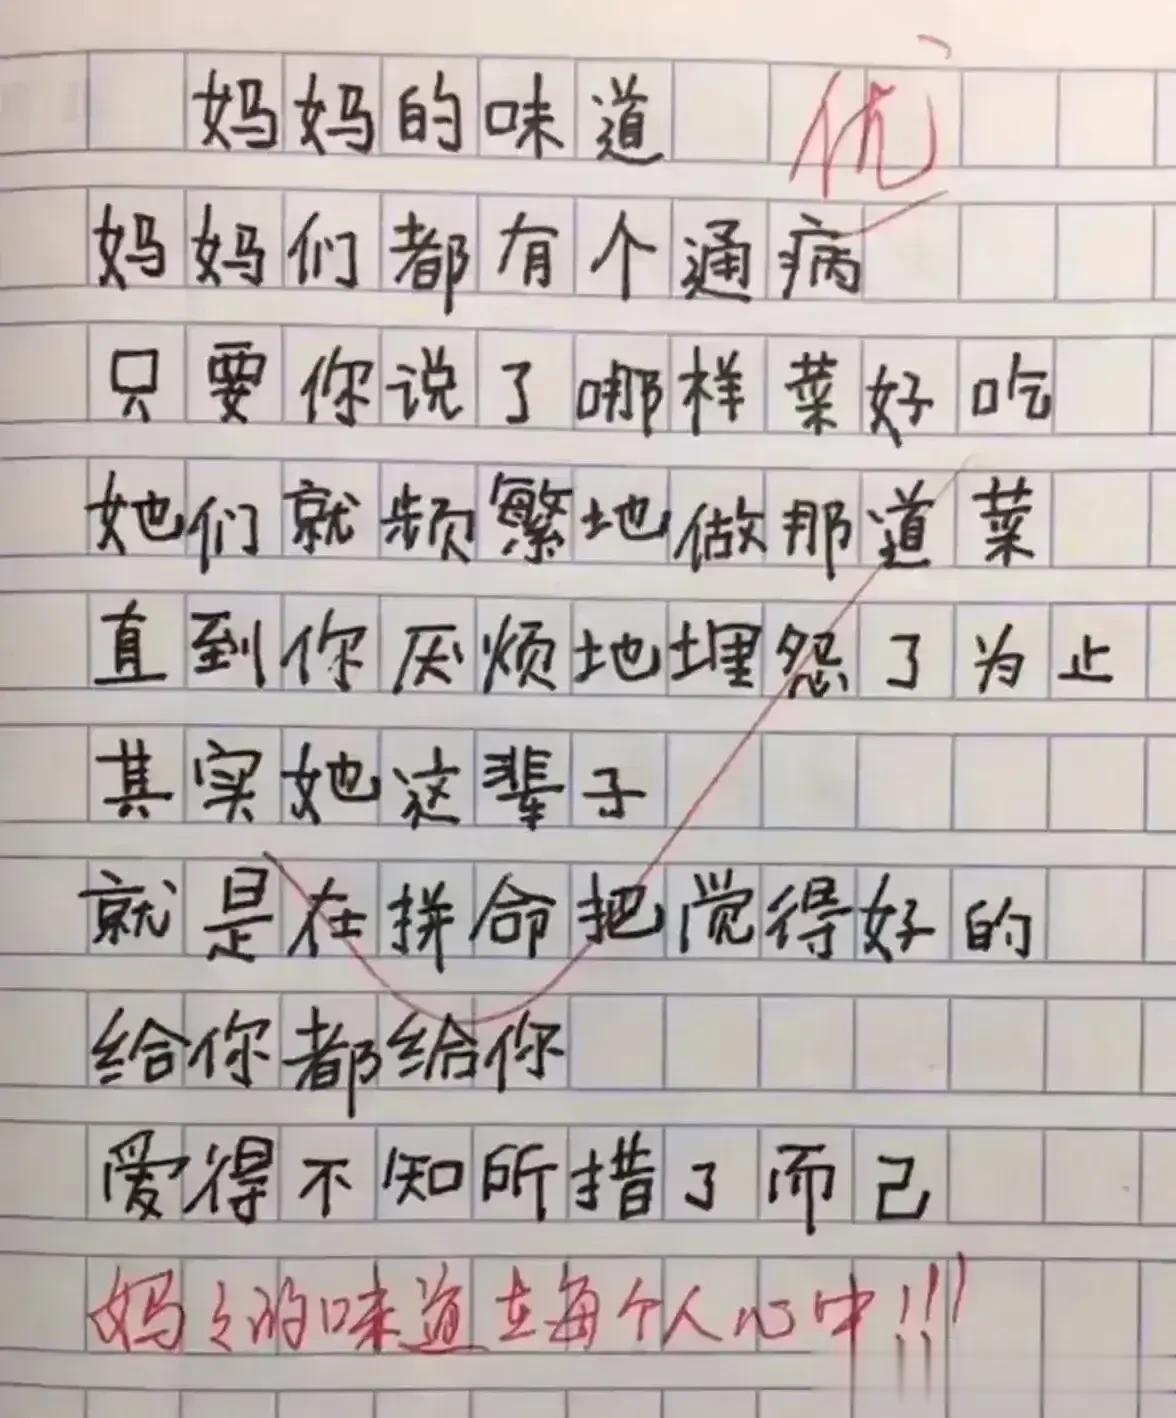 妈妈的味道
优
妈妈们都有个通病
只要你说了哪样菜好吃
她们就频繁地做那道菜
直到你厌烦地埋怨了为止
其实她这辈子
就是在拼命把觉得好的
给你都给你
爱得不知所措了而己
妈々的味道在每个人心中!!!